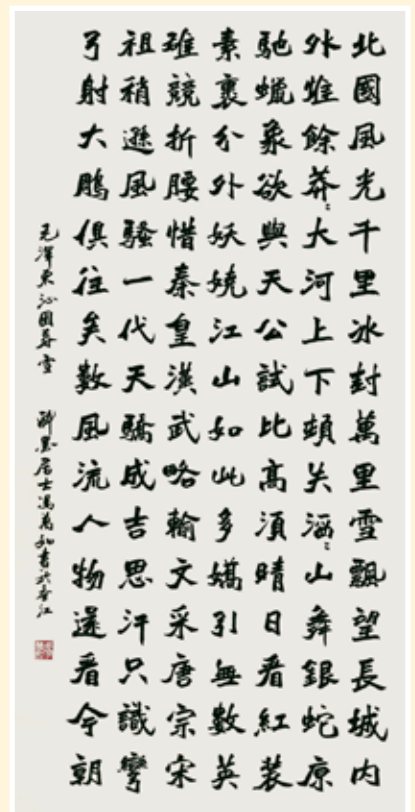 北國風光千里冰封萬里雪飄望長城内
外惟餘莽〻大河上下頓失滔〻山舞銀蛇原
馳蠟象欲與天公試比高須晴日看紅裝
素裹分外妖嬈江山如此多嬌引無數英
雄競折腰惜秦皇漢武略輸文采唐宗宋
祖稍遜風騷一代天驕成吉思汗只識彎
弓射大鵰俱往矣數風流人物還看今朝
毛澤東沁園春雪 居士馮書於香江